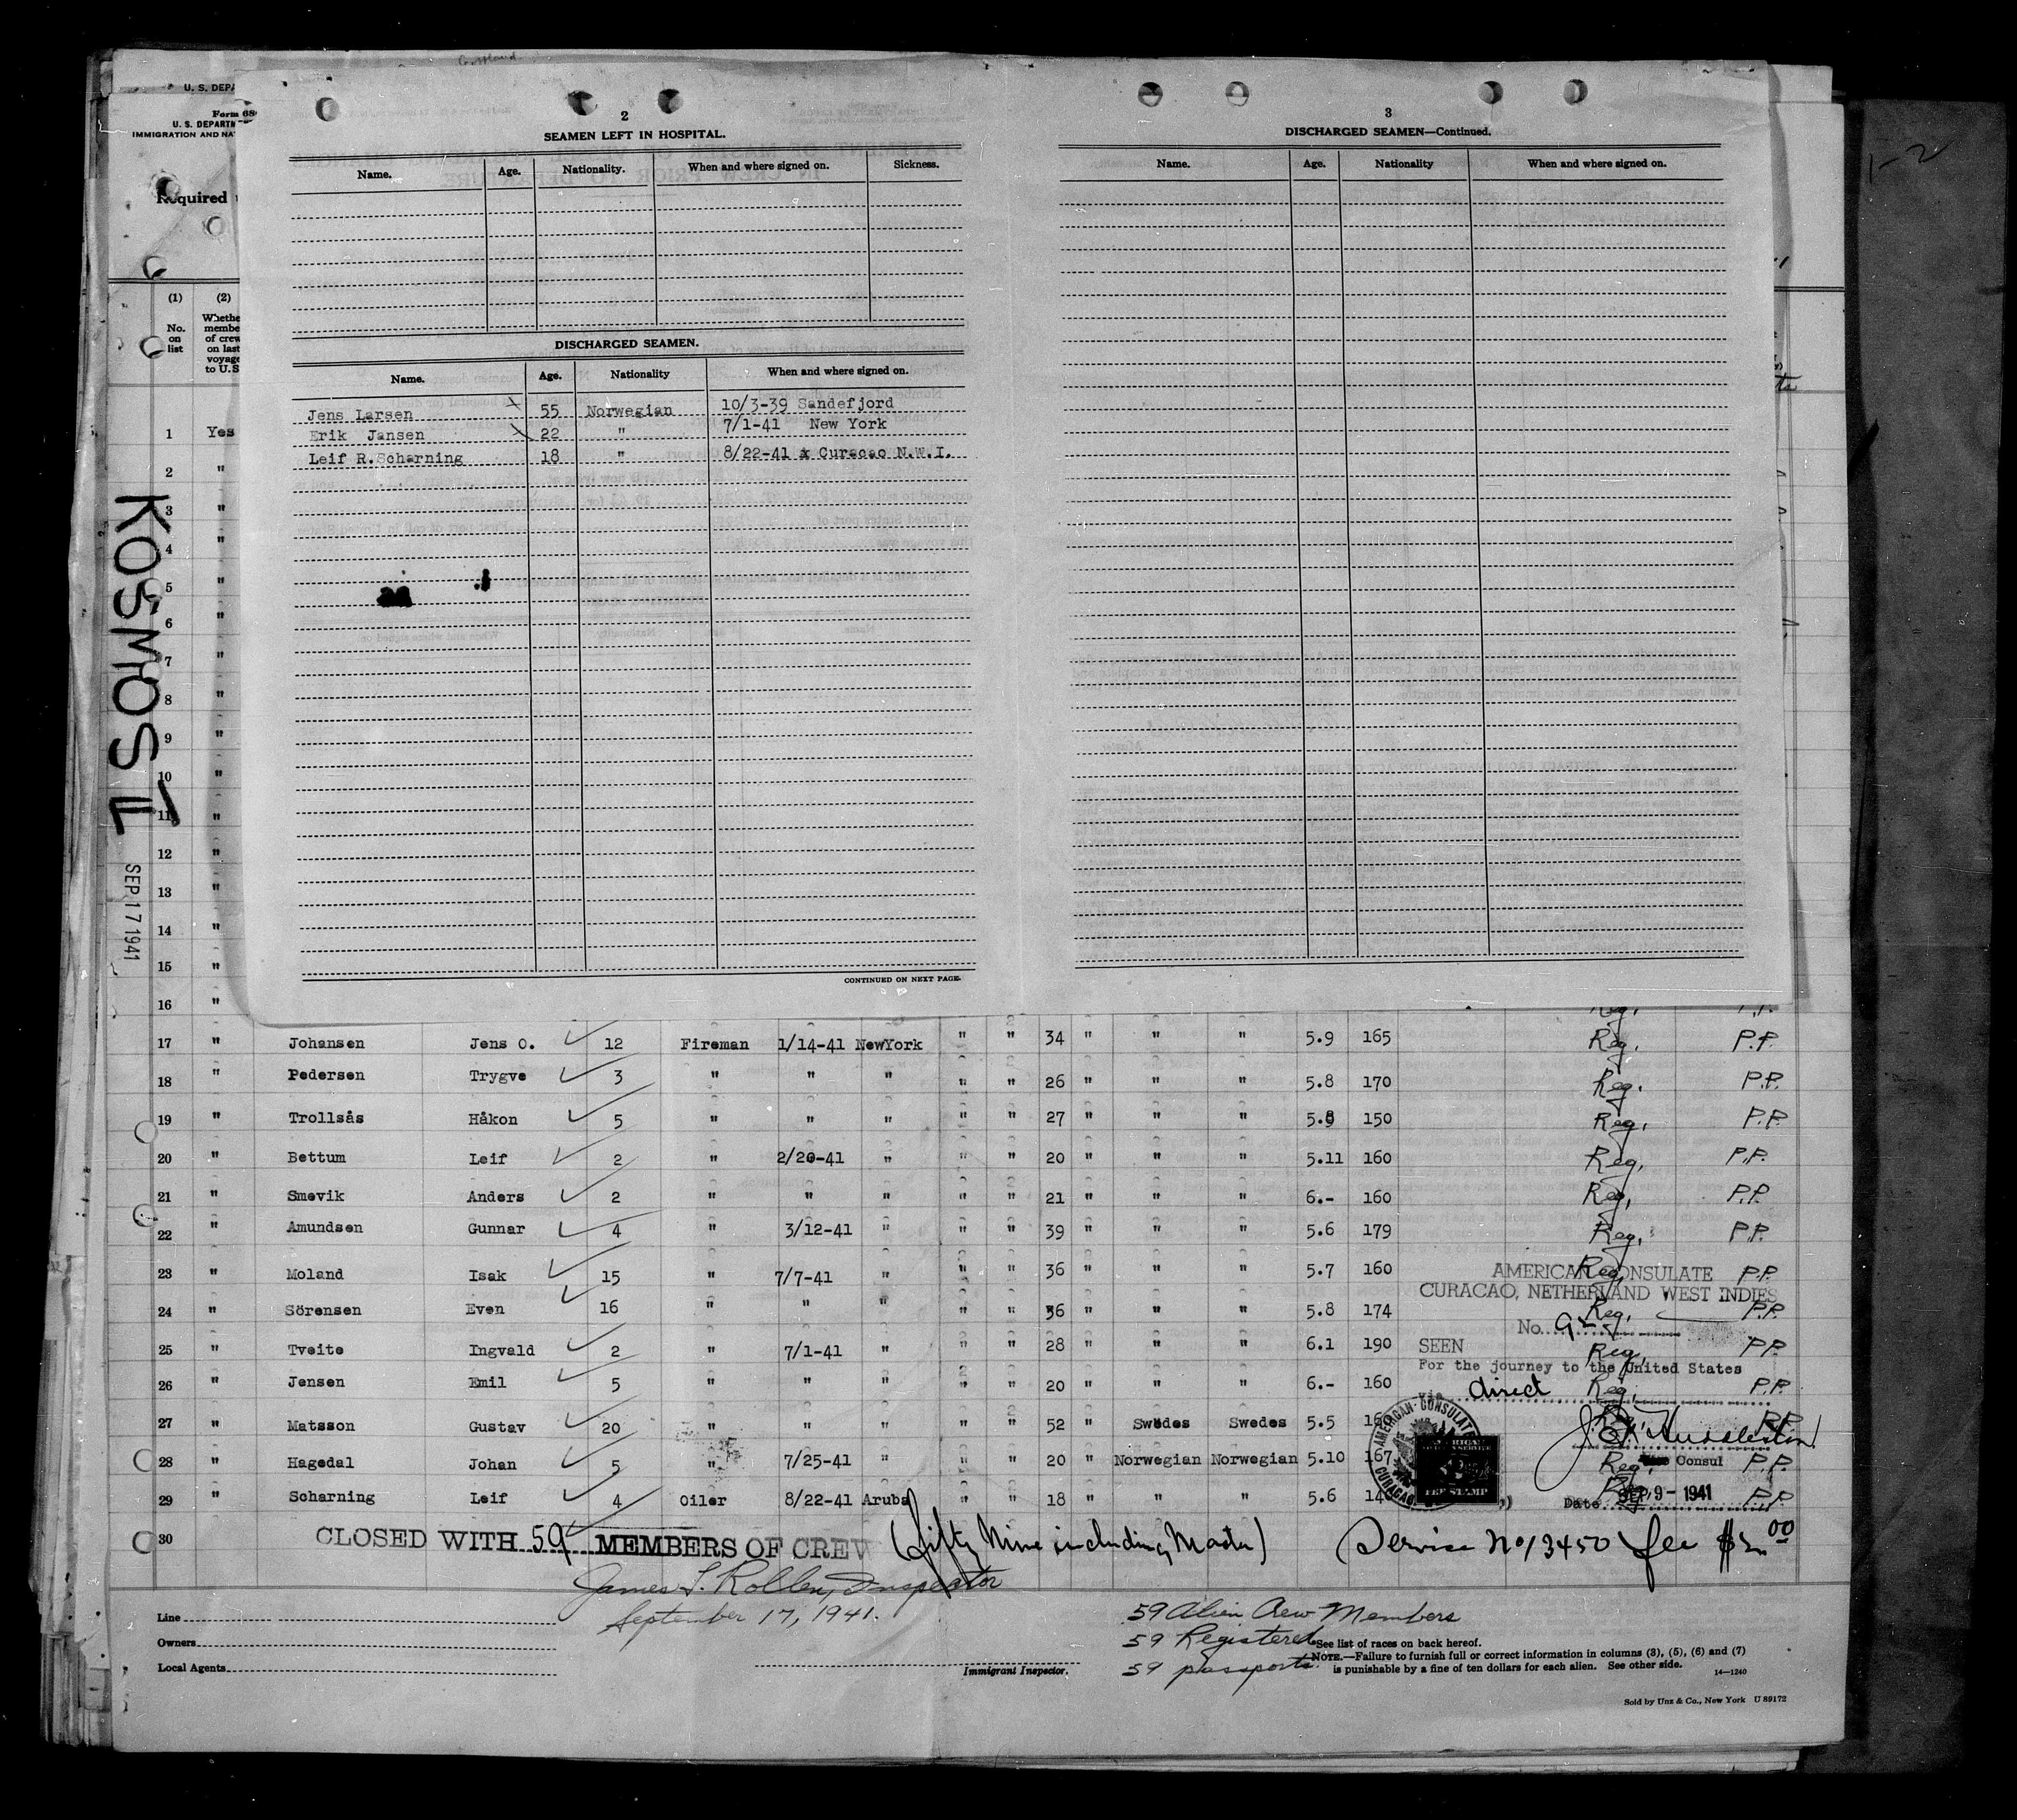 U. S. DEPA
Form 68
U. S. DEPARTM
IMMIGRATION AND NA
Required
(1) (2)
No. on list
Whethe
membe
of crew
on last
voyage
to U.S
1 Yes
2 "
3 "
4 "
5 "
6 "
7 "
8 "
9 "
10 "
11 "
12 "
13 "
14 "
15 "
16 "
KOSMOS II
SEP 17 1941
2
SEAMEN LEFT IN HOSPITAL.
Name. Age. Nationality. When and where signed on. Sickness.
DISCHARGED SEAMEN.
Name. Age. Nationality When and where signed on.
Jens Larsen 55 Norwegian 10/3-39 Sandefjord
Erik Jansen 22 " 7/1-41 New York
Leif R.Scharning 18 " 8/22-41 x Curacao N.W.I.
CONTINUED ON NEXT PAGE.
3
DISCHARGED SEAMEN—Continued.
Name. Age. Nationality When and where signed on.
1-2
17 " Johansen Jens O. 12 Fireman 1/14-41 NewYork " " 34 " " " 5.9 165 Reg. P.P.
18 " Pedersen Trygve 3 " " " " " 26 " " " 5.8 170 Reg. P.P.
19 " Trollsås Håkon 5 " " " " " 27 " " " 5.9 150 Reg. P.P.
20 " Bettum Leif 2 " 2/20-41 " " " 20 " " " 5.11 160 Reg. P.P.
21 " Smevik Anders 2 " " " " " 21 " " " 6.- 160 Reg. P.P.
22 " Amundsen Gunnar 4 " 3/12-41 " " " 39 " " " 5.6 179 Reg. P.P.
23 " Moland Isak 15 " 7/7-41 " " " 36 " " " 5.7 160 Reg. P.P.
24 " Sörensen Even 16 " " " " " 36 " " " 5.8 174 Reg. P.P.
25 " Tveite Ingvald 2 " 7/1-41 " " " 28 " " " 6.1 190 Reg. P.P.
26 " Jensen Emil 5 " " " " " 20 " " " 6.- 160 Reg. P.P.
27 " Matsson Gustav 20 " " " " " 52 " Swedes Swedes 5.5 Reg. P.P.
28 " Hagedal Johan 5 " 7/25-41 " " " 20 " Norwegian Norwegian 5.10 167 Reg. P.P.
29 " Scharning Leif 4 Oiler 8/22-41 Aruba " " 18 " " " 5.6 Reg. P.P.
AMERICAN CONSULATE
CURACAO, NETHERLAND WEST INDIES
No.
SEEN
For the journey to the United States
via direct
Consul
Date SEP 9 - 1941
AMERICAN CONSULATE CURACAO
FEE STAMP
30 CLOSED WITH 59 MEMBERS OF CREW (fifty nine including Master) Service No 13450 fee $2.00
James L. Rollen, Inspector
September 17, 1941.
Line
Owners
Local Agents
Immigrant Inspector.
59 Alien Crew Members
59 Registered
59 passports.
See list of races on back hereof.
NOTE.—Failure to furnish full or correct information in columns (3), (5), (6) and (7)
is punishable by a fine of ten dollars for each alien. See other side.
14—1240
Sold by Unz & Co., New York U 89172